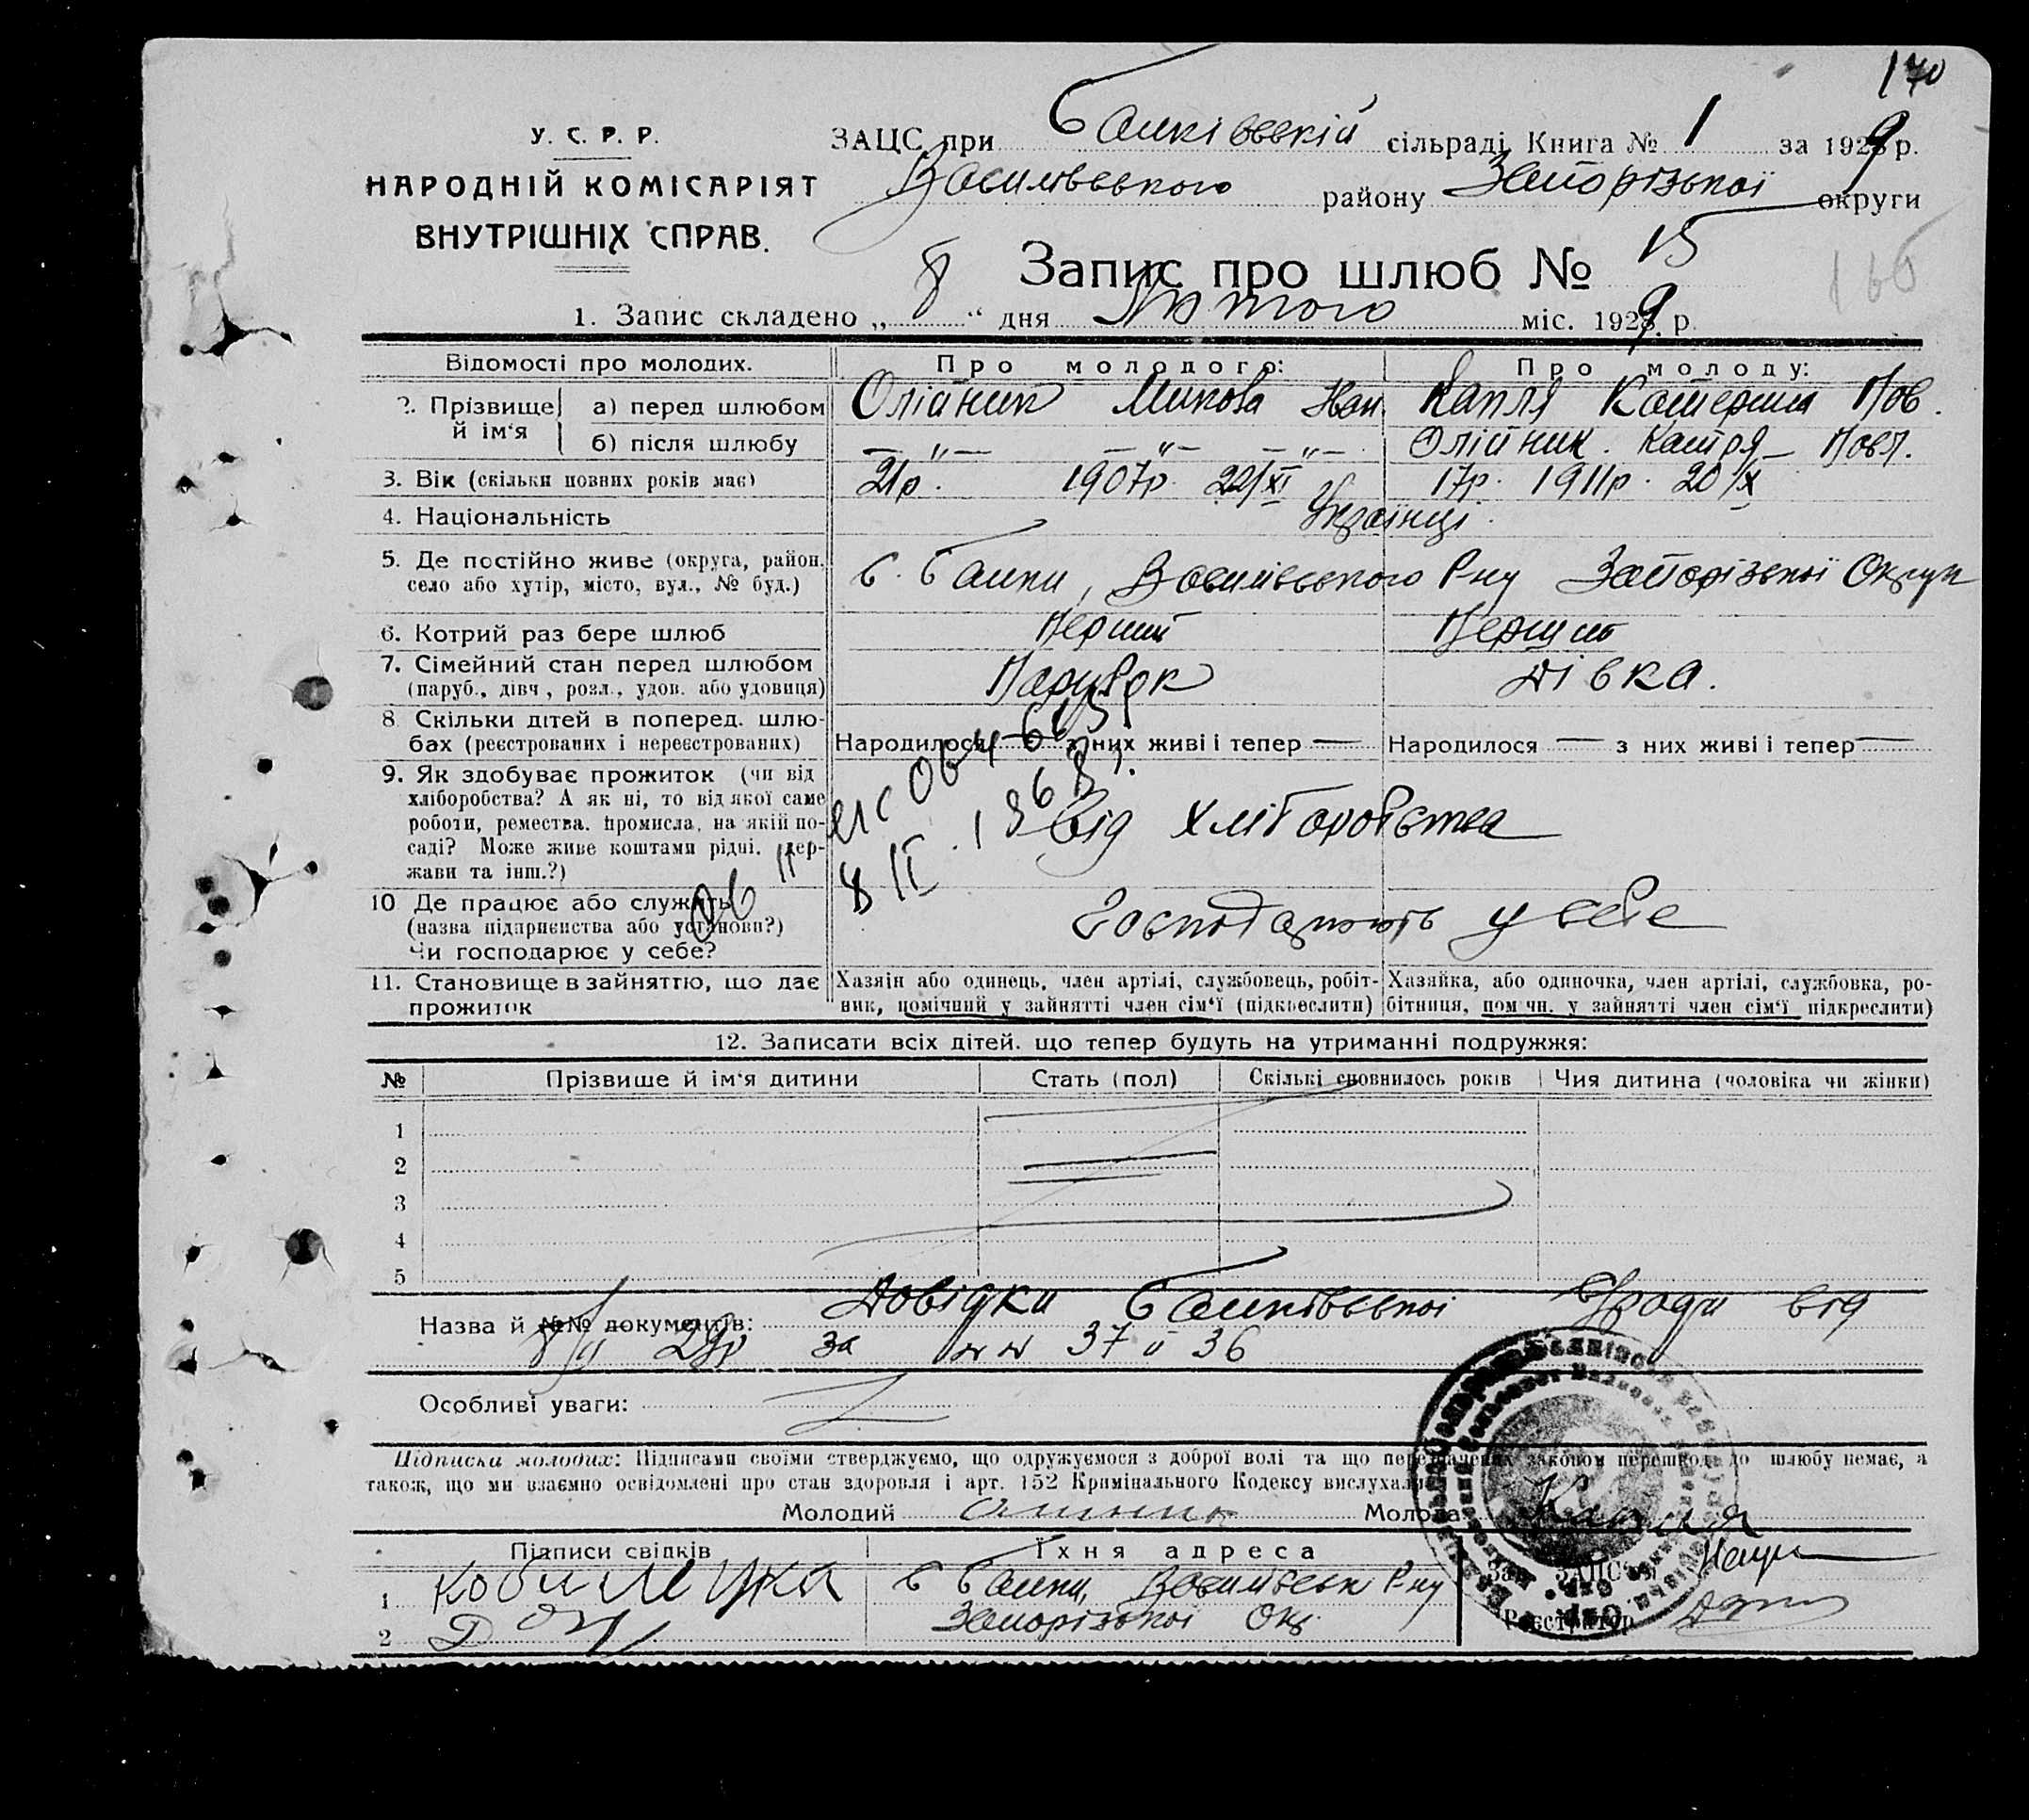 170
У. С. Р. Р.
НАРОДНІЙ КОМІСАРІЯТ
ВНУТРІШНІХ СПРАВ.
ЗАЦС при Балківській сільраді Книга № 1 за 1929 р.
Василівського району Запорізької округи
Запис про шлюб № 15
1. Запис складено „ 8 “ дня Лютого міс. 1929 р.
Відомості про молодих. Про молодого: Про молоду:
2. Прізвище й ім‘я а) перед шлюбом Олійник Микола Іван. Капля Катерина Пав.
б) після шлюбу — „ — — „ — — „ — Олійник. Катря Павл.
3. Вік (скільки повних років має) 21р. 1907р. 22/XI 17р. 1911р. 20/X
4. Національність Українці
5. Де постійно живе (округа, район, село або хутір, місто, вул., № буд.) с. Балки, Василівського Р-ну Запорізької Округи
6. Котрий раз бере шлюб Перший Перший
7. Сімейний стан перед шлюбом (паруб., дівч., розл., удов. або удовиця) Парубок Дівка.
8. Скільки дітей в поперед. шлюбах (реєстрованих і нереєстрованих) Народилося — з них живі і тепер — Народилося — з них живі і тепер —
9. Як здобуває прожиток (чи від хліборобства? А як ні, то від якої саме роботи, ремества, промисла, на якій посаді? Може живе коштами рідні, держави та інш.?) від хліборобства
10. Де працює або служить (назва підприємства або установи?) Чи господарює у себе? Господарюють у себе
11. Становище в зайняттю, що дає прожиток
Хазяін або одинець, член артілі, службовець, робітник, помічний у зайнятті член сім‘ї (підкреслити)
Хазяйка, або одиночка, член артілі, службовка, робітниця, пом чн. у зайнятті член сім‘ї підкреслити)
12. Записати всіх дітей, що тепер будуть на утриманні подружжя:
№ Прізвище й ім‘я дитини Стать (пол) Скількі сповнилось років Чия дитина (чоловіка чи жінки)
1
2
3
4
5
Назва й №№ документів: Довідки Балківської С/ради від
8/II 29р за №№ 37 и 36
Особливі уваги:
Підписи молодих: Підписами своїми стверджуємо, що одружуємося з доброї волі та що передбачених законом перешкод до шлюбу немає, а
також, що ми взаємно освідомлені про стан здоровля і арт. 152 Кримінального Кодексу вислухали.
Молодий Молода Капля
Підписи свідків Їхня адреса
1 с Балки, Василівськ Р-ну
2 Запорізької Окр.
Зав. ЗАЦС‘ом
Реєстратор